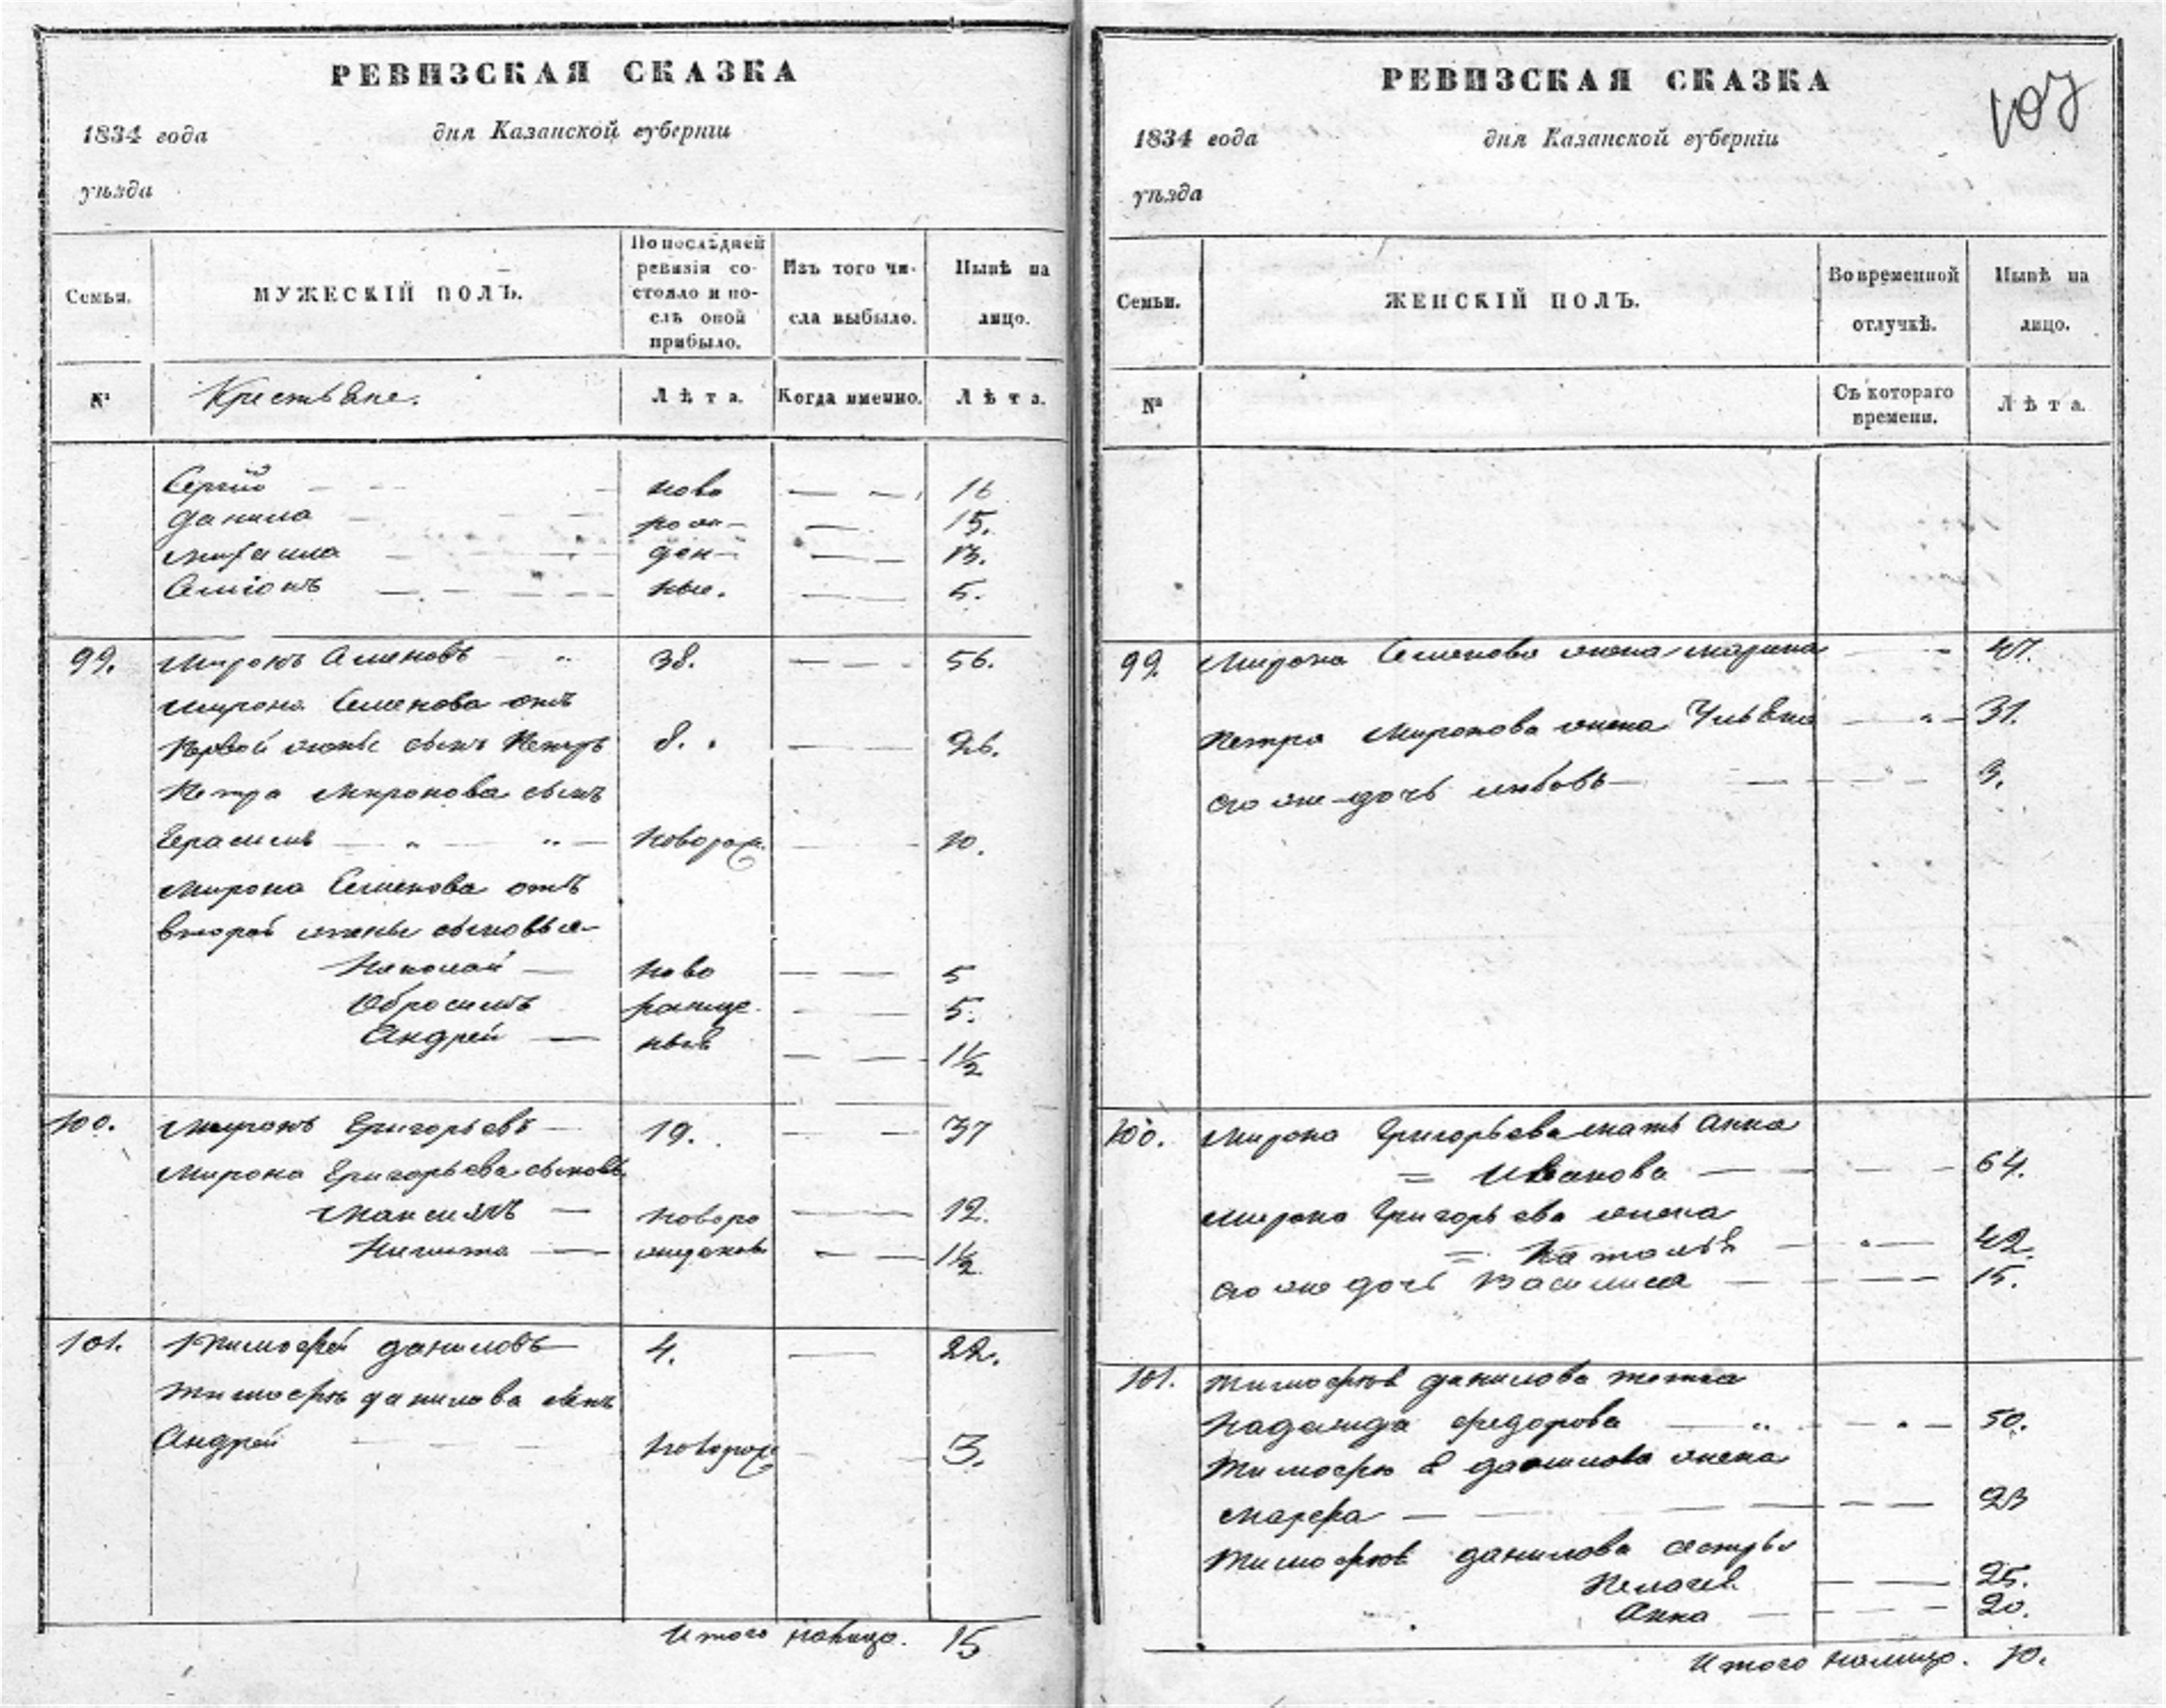 РЕВИЗСКАЯ СКАЗКА
1834 года дня Казанской губерніи
уѣзда
Семьи.
МУЖЕСКІЙ ПОЛЪ.
По послѣдней ревизіи состояло и послѣ оной прибыло.
Изъ того числа выбыло.
Нынѣ на лицо.
№
Крестьяне.
Лѣта.
Когда именно.
Лѣта.
Сергій ново 16
Данила рож- 15.
Михаила ден- 13.
Симіонъ ные. 5.
99. Миронъ Семеновъ 38. 56.
Мирона Семенова отъ
первой жены сынъ Петръ 8. 26.
Петра Миронова сынъ
Герасимъ новорож. 10.
Мирона Семенова отъ
второй жены сыновья
Николай ново 5
Обросимъ рожде 5.
Андрей ныя 1½
100. Миронъ Григорьевъ 19. 37
Мирона Григорьева сыновья
Максимъ новоро 12.
Никита жденыя 1½
101. Тимофей Даниловъ 4. 22.
Тимофея Данилова сынъ
Андрей новорож. 3.
Итого налицо. 15
РЕВИЗСКАЯ СКАЗКА
107
1834 года дня Казанской губерніи
уѣзда
Семьи.
ЖЕНСКІЙ ПОЛЪ.
Во временной отлучкѣ.
Нынѣ на лицо.
№
Съ котораго времени.
Лѣта.
99. Мирона Семенова жена Марина 47.
Петра Миронова жена Ульяна 31.
его же дочь Любовь 3.
100. Мирона Григорьева мать Анна
= Иванова 64.
Мирона Григорьева жена
= Наталья 42.
его же дочь Василиса 15.
101. Тимофея Данилова тетка
Надежда Федорова 50.
Тимофея Данилова жена
Марфа 23
Тимофея Данилова сестры
Пелагея 25.
Анна 20.
Итого налицо. 10.